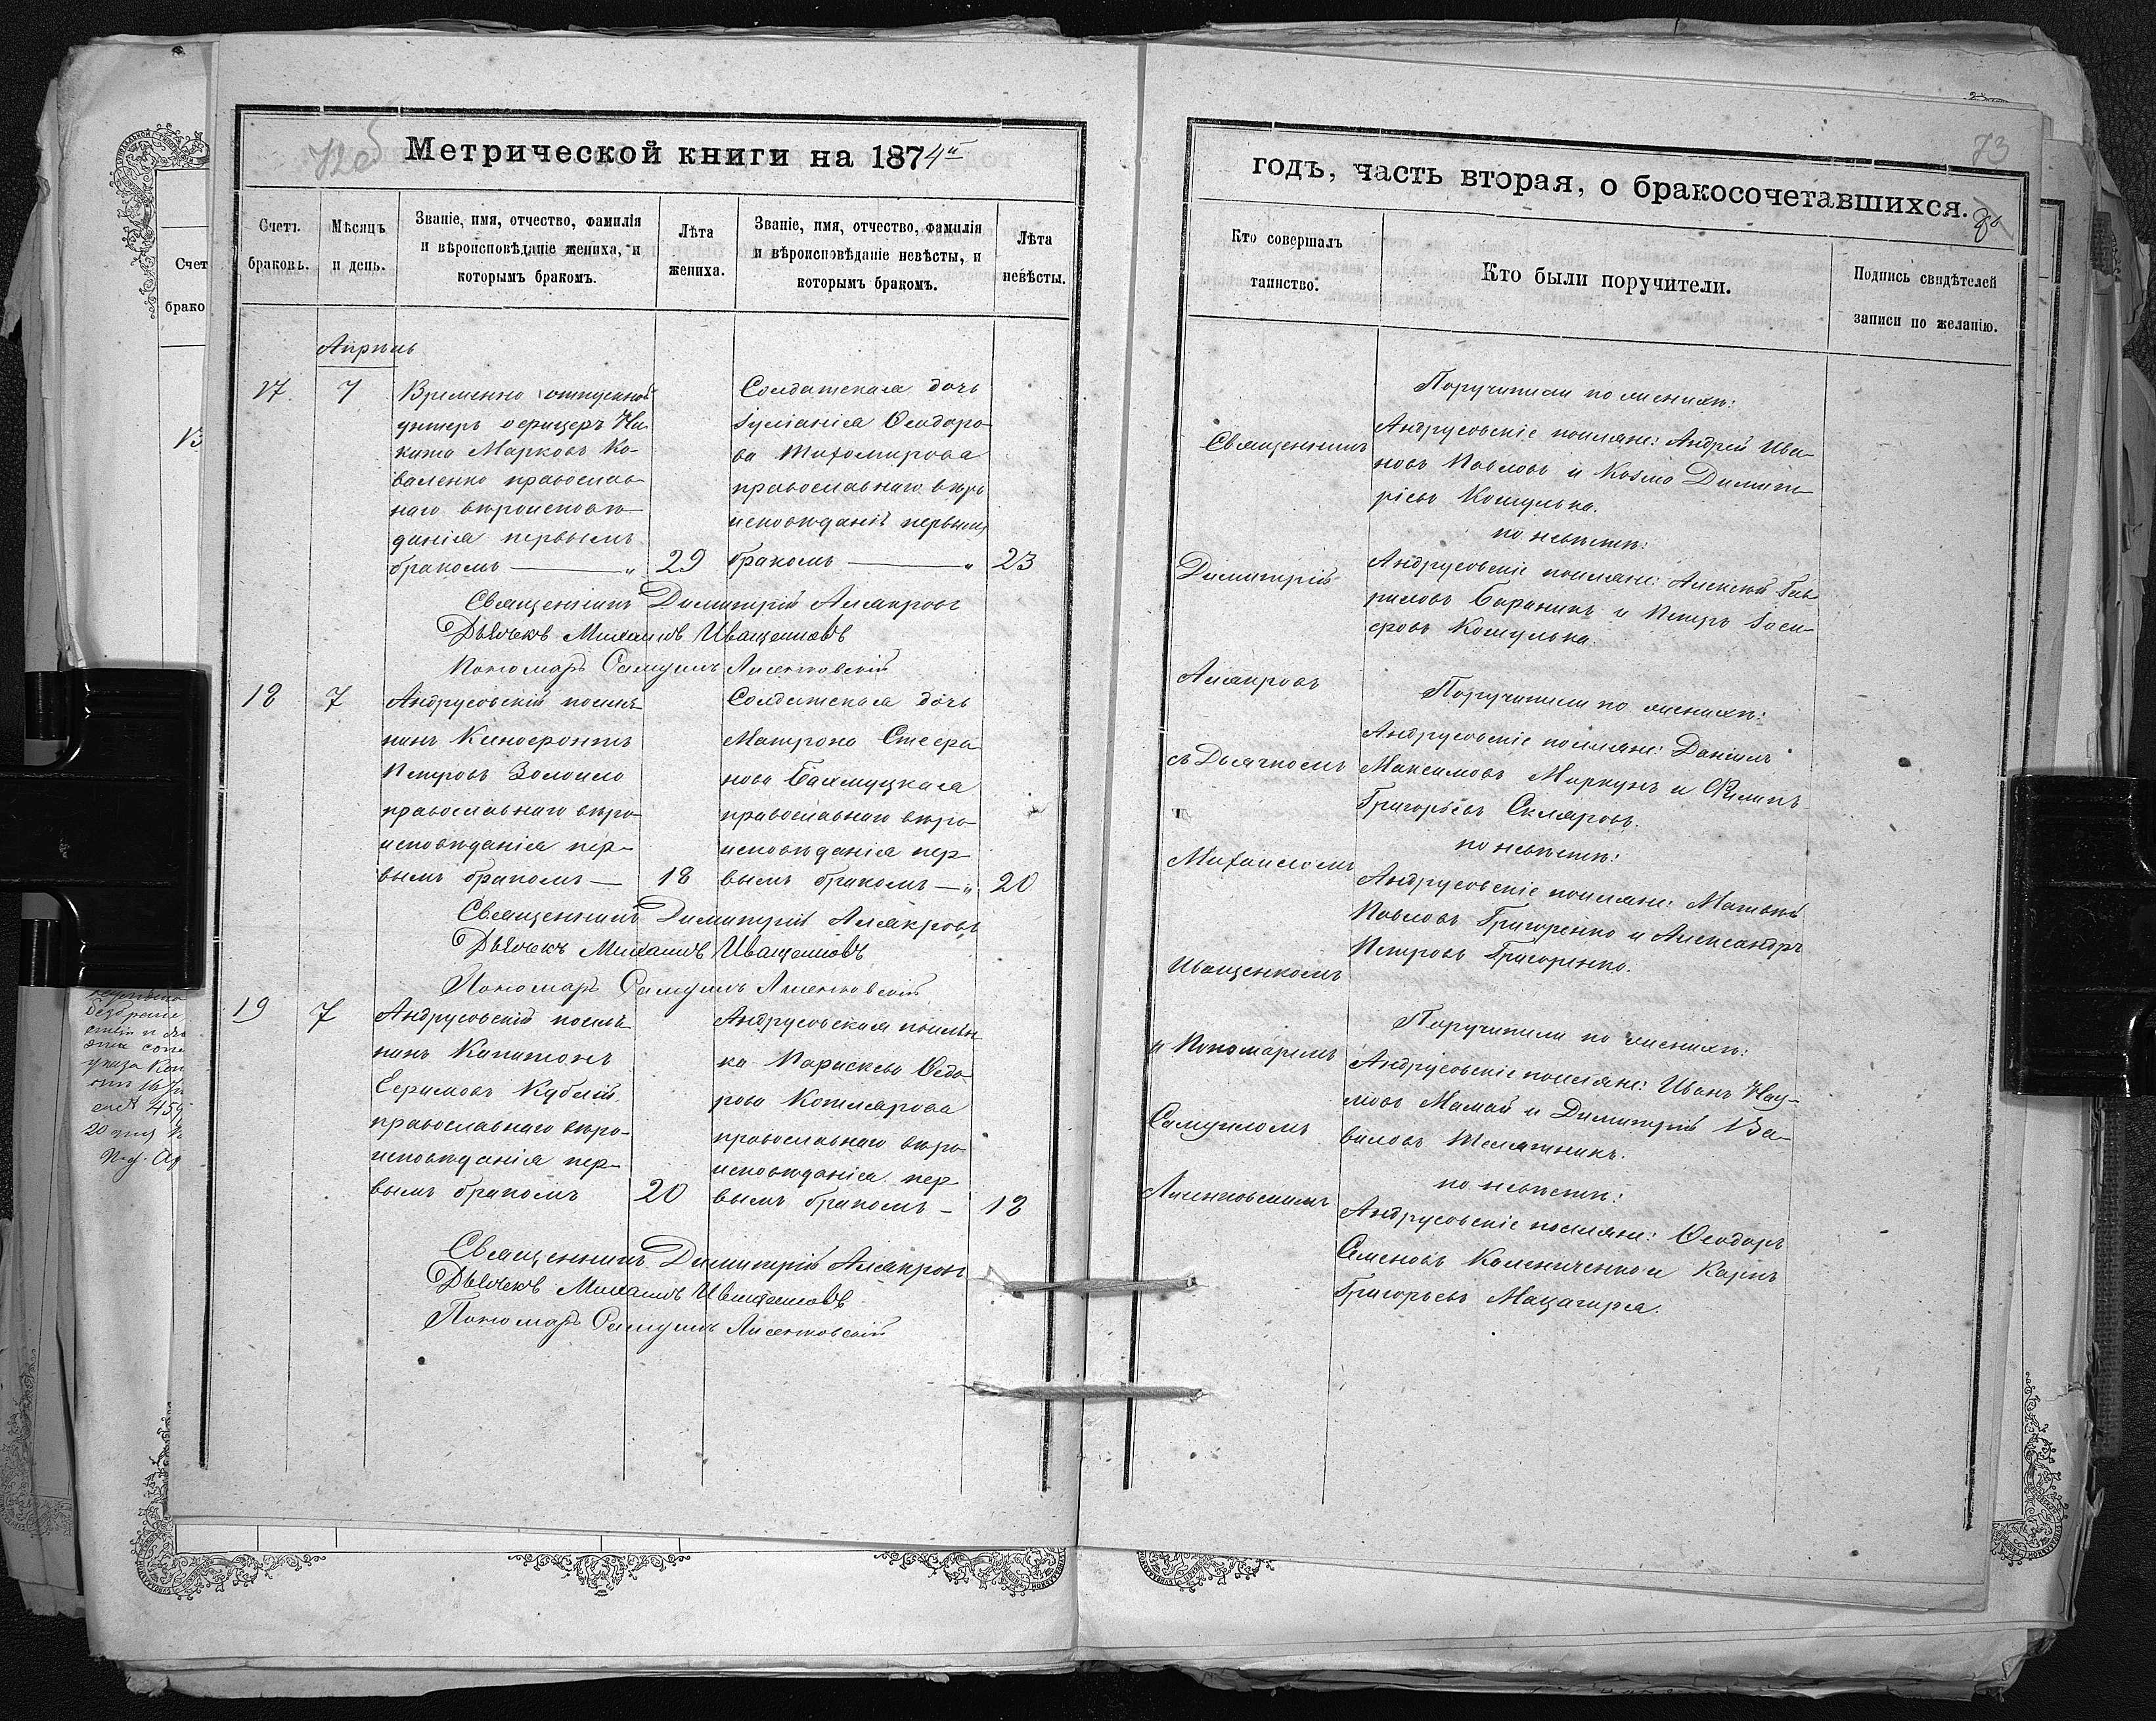 72об
Метрической книги на 1874й
Счетъ
браковъ.
Мѣсяцъ
и день.
Званіе, имя, отчество, фамилія
и вѣроисповѣданіе жениха, и
которымъ бракомъ.
Лѣта
жениха.
Званіе, имя, отчество, фамилія
и вѣроисповѣданіе невѣсты, и
которымъ бракомъ.
Лѣта
невѣсты.
Апрѣль
17
7
Временно отпускной
унтеръ офицеръ Ни-
кита Марковъ Ко-
валенко православ-
наго вѣроисповѣ-
данія первымъ
бракомъ
29
Солдатская дочь
Іуліанія Ѳеодоро-
ва Тихомирова
православнаго вѣро
исповѣданія первымъ
бракомъ
23
Священникъ Димитрій Алякровъ
Дьячекъ Михаилъ Иващенковъ
Пономарь Самуилъ Лисенковскій
18
7
Андрусовскій поселя-
нинъ Ксенофонтъ
Петровъ
православнаго вѣро-
исповѣданія пер-
вымъ бракомъ
18
Солдатская дочь
Матрона Стефа-
нова Бахмуцкая
православнаго вѣро-
исповѣданія пер-
вымъ бракомъ
20
Священникъ Димитрій Алякровъ
Дьячекъ Михаилъ Иващенковъ
Пономарь Самуилъ Лисенковскій
19
7
Андрусовскій поселя-
нинъ Капитонъ
Ефимовъ Кублій
православнаго вѣро-
исповѣданія пер-
вымъ бракомъ
20
Андрусовская поселян
ка Параскева Ѳедо-
рова Котлярова
православнаго вѣро-
исповѣданія пер-
вымъ бракомъ
18
Священникъ Димитрій Алякровъ
Дьячекъ Михаилъ Иващенковъ
Пономарь Самуилъ Лисенковскій
73
годъ, часть вторая, о бракосочетавшихся.
Кто совершалъ
таинство.
Кто были поручители.
Подпись свидѣтелей
записи по желанію.
Священникъ
Димитрій
Алякровъ
съ Дьячкомъ
Михаиломъ
Иващенкомъ
и Пономаремъ
Самуиломъ
Лисенковскимъ
Поручители по женихѣ:
Андрусовскіе поселяне: Андрей Ива-
новъ Павловъ и Козма Димит-
ріевъ Кошулька.
по невѣстѣ:
Андрусовскіе поселяне: Алексѣй Гав-
риловъ Бараникъ и Петръ Іоси-
фовъ Кошулька.
Поручители по женихѣ:
Андрусовскіе поселяне: Даніилъ
Максимовъ Моркунъ и Филипъ
Григорьевъ Скляровъ.
по невѣстѣ:
Андрусовскіе поселяне: Матвѣй
Павловъ Григоренко и Александръ
Петровъ Григоренко.
Поручители по женихѣ:
Андрусовскіе поселяне: Иванъ Нау-
мовъ Мамай и Димитрій Ва-
виловъ Телятникъ.
по невѣстѣ:
Андрусовскіе поселяне: Ѳеодоръ
Семеновъ Колениченко и Карпъ
Григорьевъ Мацагира.
Счет
брако